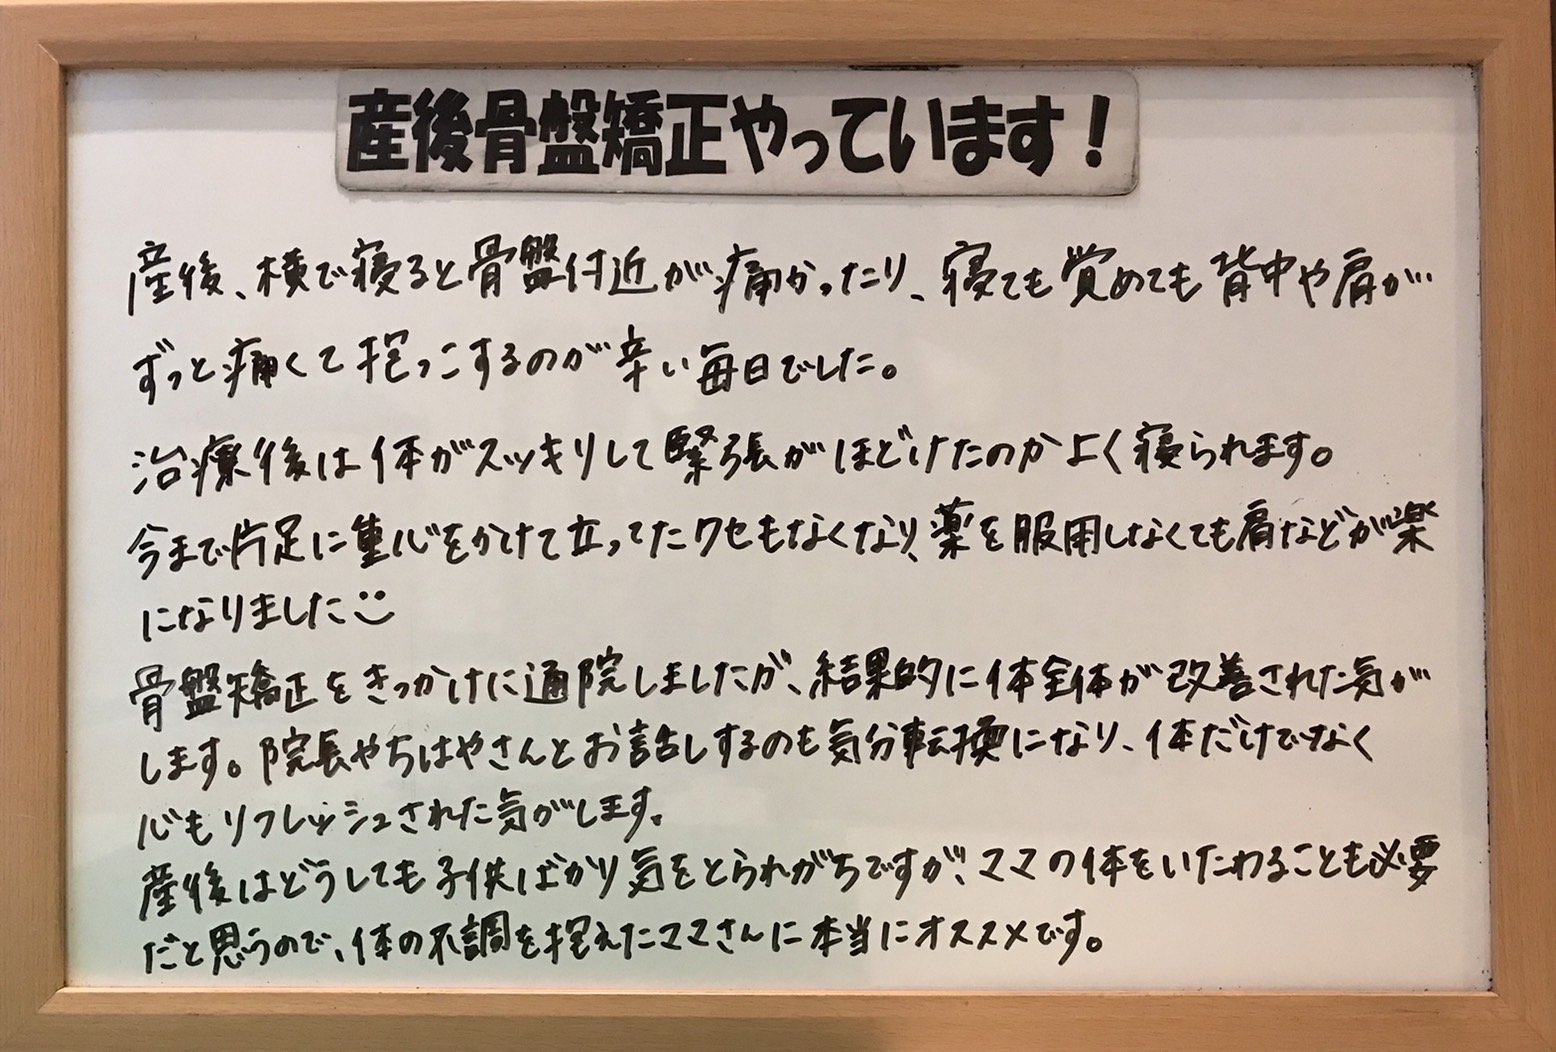 産後骨盤矯正やっています！
産後、横で寝ると骨盤付近が痛かったり、寝ても覚めても背中や肩が
ずっと痛くて抱っこするのが辛い毎日でした。
治療後は体がスッキリして緊張がほどけたのかよく寝られます。
今まで片足に重心をかけて立ってたクセもなくなり、薬を服用しなくても肩などが楽
になりました
骨盤矯正をきっかけに通院しましたが、結果的に体全体が改善された気が
します。院長やちはやさんとお話しするのも気分転換になり、体だけでなく
心もリフレッシュされた気がします。
産後はどうしても子供ばかり気をとられがちですが、ママの体をいたわることも必要
だと思うので、体の不調を抱えたママさんに本当にオススメです。